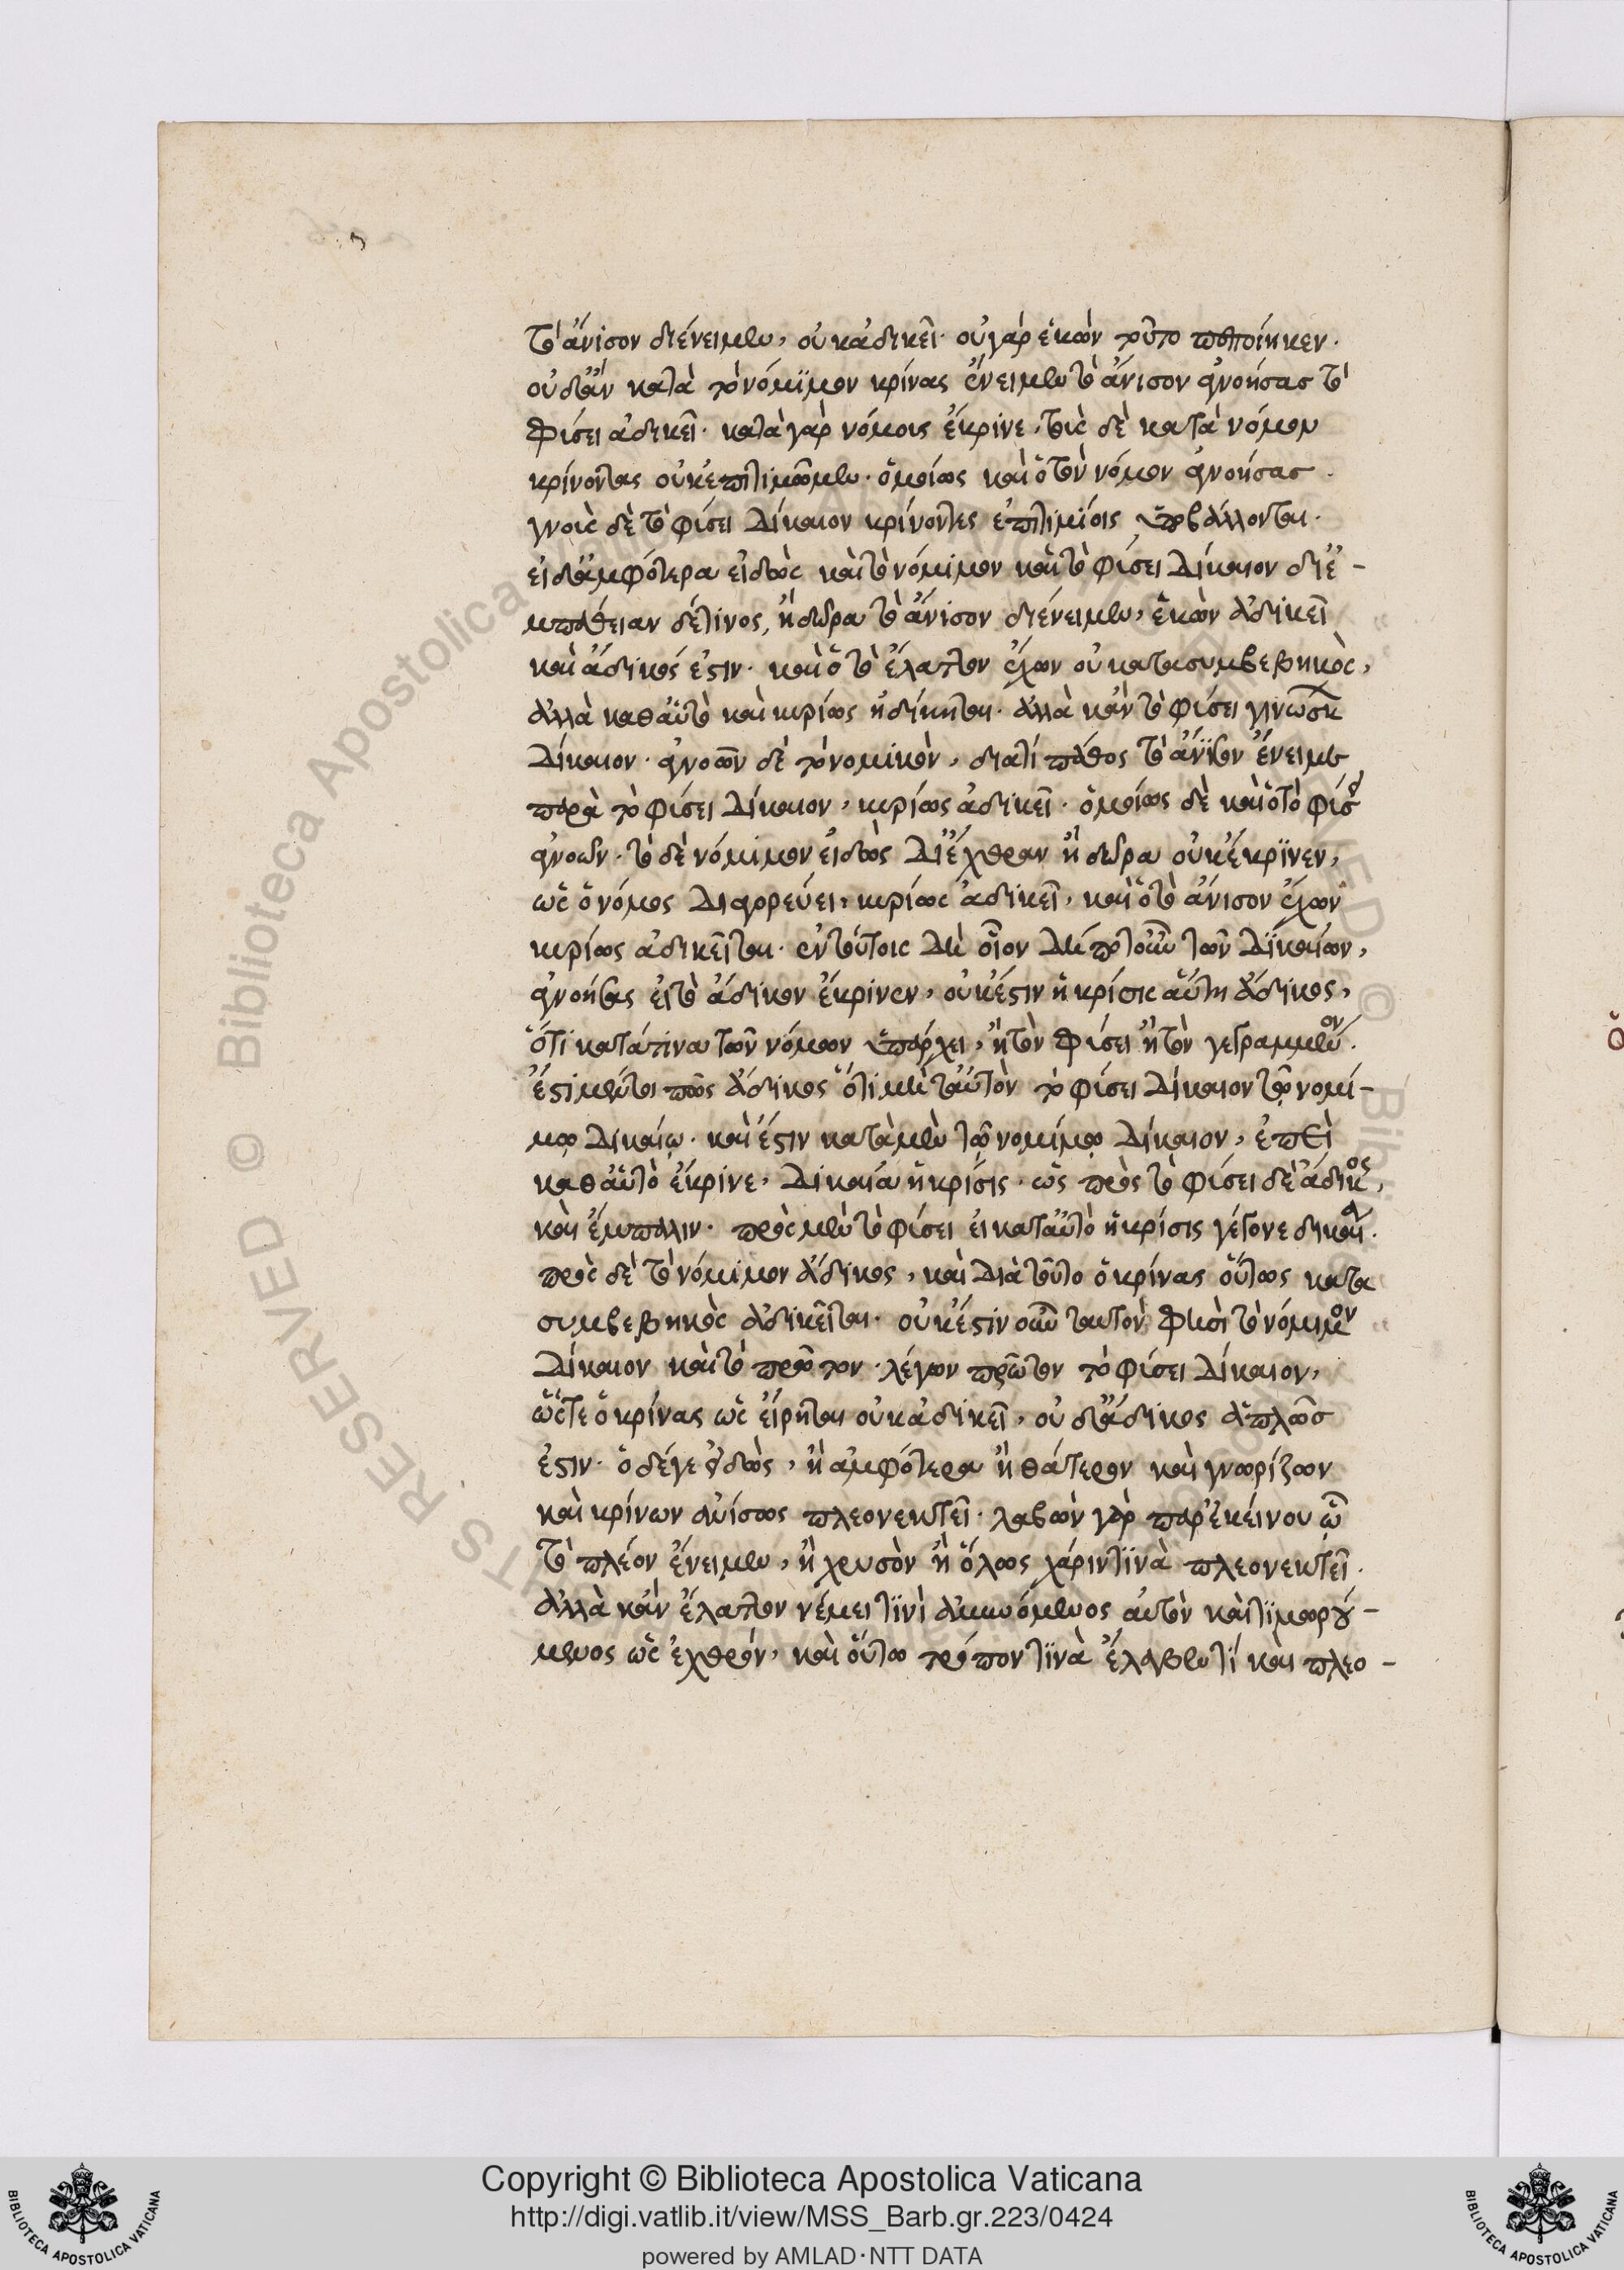 τὸ ἄνισον διένειμεν, οὐκ ἀδικεῖ· οὐ γὰρ ἑκὼν τοῦτο πεποίηκεν·
οὐδ' ἂν κατὰ τὸ νόμιμον κρίνας ἔνειμεν τὸ ἄνισον ἀγνοήσας τὸ
φύσει ἀδικεῖ· κατὰ γὰρ νόμοις ἔκρινε, τοῖς δὲ κατὰ νόμον
κρίνοντας οὐκ ἐπιτιμῶμεν· ὁμοίως καὶ ὁ τὸν νόμον ἀγνοήσας·
δὲ τὸ φύσει δίκαιον κρίνοντες ἐπιτιμίοις ὑποβάλλονται·
εἰ δ' ἀμφότερα εἰδὼς καὶ τὸ νόμιμον καὶ τὸ φύσει δίκαιον δι' ἐ-
μπάθειαν δέ τινος, ἢ δῶρα τὸ ἄνισον διένειμεν, ἑκὼν ἀδικεῖ
καὶ ἄδικός ἐστιν· καὶ ὁ τὸ ἔλαττον ἔχων οὐ κατασυμβεβηκὸς,
ἀλλὰ καθ' αὑτὸ καὶ κυρίως ἠδίκηται· ἀλλὰ κἂν τὸ φύσει γινώσκ
δίκαιον· ἀγνοῶν δὲ τὸ νομικὸν, διά τι πάθος τὸ ἄνισον ἔνειμε
παρὰ τὸ φύσει δίκαιον, κυρίως ἀδικεῖ· ὁμοίως δὲ καὶ ὁ τὸ φύσ
ἀγνοῶν· τὸ δὲ νόμιμον εἰδὼς δι' ἔχθραν ἢ δῶρα οὐκ ἔκρινεν,
ὡς ὁ νόμος διαγορεύει, κυρίως ἀδικεῖ, καὶ ὁ τὸ ἄνισον ἔχων
κυρίως ἀδικεῖται· ἐν τούτοις δὴ οἷον δή ποτ' οὖν τῶν δικαίων,
ἀγνοήσας εἰ τὸ ἄδικον ἔκρινεν, οὐκ ἔστιν ἡ κρίσις αὕτη ἄδικος,
ὅτι κατά τινα τῶν νόμων ὑπάρχει, ἢ τὸν φύσει ἢ τὸν γεγραμμένον·
ἔστι μέντοι πως ἄδικος ὅτι μὴ ταὐτὸν τὸ φύσει δίκαιον τῷ νομί-
μῳ δικαίῳ· καὶ ἔστιν κατὰ μὲν τῷ νομίμῳ δίκαιον, ἐπεὶ
καθ' αὑτὸ ἔκρινε, δικαία ἡ κρίσις· ὡς πρὸς τὸ φύσει δὲ ἄδικος,
καὶ ἔμπαλιν· πρὸς μὲν τὸ φύσει εἰ κατ' αὐτὸ ἡ κρίσις γέγονε δικαία·
πρὸς δὲ τὸ νόμιμον ἄδικος, καὶ διὰ τοῦτο ὁ κρίνας οὕτως κατα
συμβεβηκὸς ἀδικεῖται· οὐκ ἔστιν οὖν ταυτὸν φησὶ τὸ νόμιμον
δίκαιον καὶ τὸ πρῶτον· λέγων πρῶτον τὸ φύσει δίκαιον,
ὥστε ὁ κρίνας ὡς εἴρηται οὐκ ἀδικεῖ, οὐδ' ἄδικος ἁπλῶς
ἐστιν· ὁ δέ γε εἰδὼς, ἢ ἀμφότερα ἢ θάτερον καὶ γνωρίζων
καὶ κρίνων ἀνίσως πλεονεκτεῖ· λαβὼν γὰρ παρ' ἐκείνου ᾧ
τὸ πλέον ἔνειμεν, ἢ χρυσὸν ἢ ὅλως χάριν τινὰ πλεονεκτεῖ·
ἀλλὰ κἂν ἔλαττον νέμει τινὶ ἀμυνόμενος αὐτὸν καὶ τιμωρού-
μενος ὡς ἐχθρόν, καὶ οὕτω τρόπον τινὰ ἔλαβέν τί καὶ πλεο-
Copyright © Biblioteca Apostolica Vaticana
http://digi.vatlib.it/view/MSS_Barb.gr.223/0424
powered by AMLAD·NTT DATA